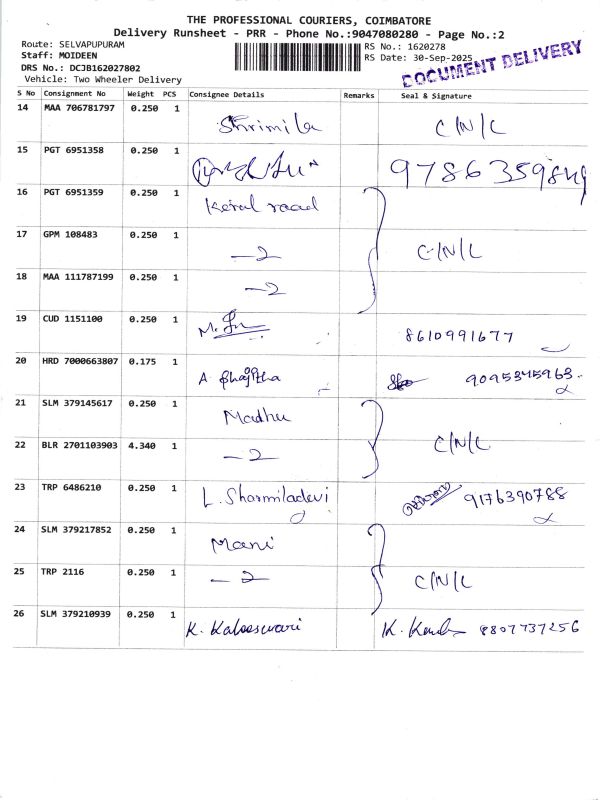 THE PROFESSIONAL COURIERS, COIMBATORE
Delivery Runsheet - PRR - Phone No.:9047080280 - Page No.:2
Route: SELVAPUPURAM
Staff: MOIDEEN
DRS No.: DCJB162027802
Vehicle: Two Wheeler Delivery
RS No.: 1620278
RS Date: 30-Sep-2025
DOCUMENT DELIVERY
S No Consignment No Weight PCS Consignee Details Remarks Seal & Signature
14 MAA 706781797 0.250 1 Shrimila C/N/L
15 PGT 6951358 0.250 1
16 PGT 6951359 0.250 1
17 GPM 108483 0.250 1 —2 C/N/L
18 MAA 111787199 0.250 1 —2
19 CUD 1151100 0.250 1 8610991677
20 HRD 7000663807 0.175 1 9095345963
21 SLM 379145617 0.250 1 Madhu
22 BLR 2701103903 4.340 1 —2 C/N/L
23 TRP 6486210 0.250 1 L. Sharmiladevi 9176390788
24 SLM 379217852 0.250 1 Mani
25 TRP 2116 0.250 1 —2 C/N/L
26 SLM 379210939 0.250 1 K. Kaleeswari 8807737256